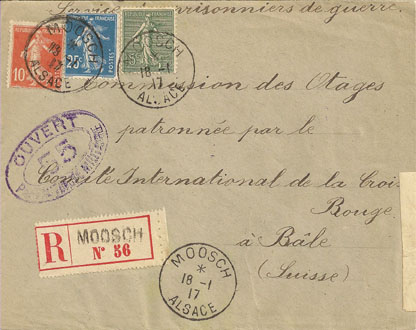 Service prisonniers de guerre.
MOOSCH
18-1
17
ALSACE
10
25c
POSTES
MOOSCH
18-1
17
ALSACE
Commission des Otages
patronnée par le
Comité International de la Croix
Rouge
à Bâle
(Suisse)
OUVERT
R MOOSCH
N° 56
MOOSCH
*
18-1
17
ALSACE